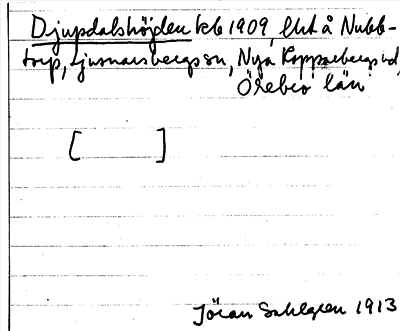 Djupdalshöjden kb 1909, lht å Nubb-
torp, Ljusnarsbergs sn, Nya Kopparbergs hd,
Örebro län
[ ]
Jöran Sahlgren 1913